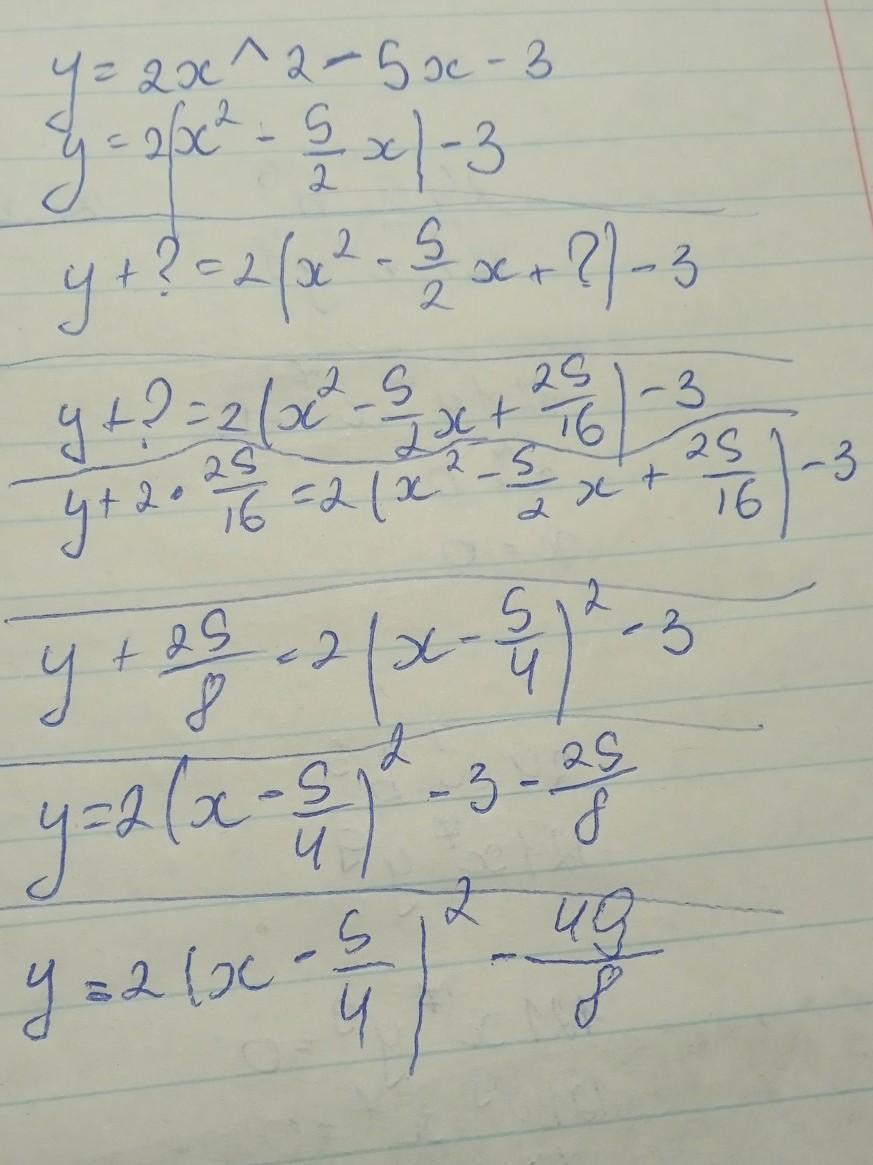 y = 2x^2 - 5x - 3
y = 2(x² - 5/2 x) - 3
y + ? = 2(x² - 5/2 x + ?) - 3
y + ? = 2(x² - 5/2 x + 25/16) - 3
y + 2 · 25/16 = 2(x² - 5/2 x + 25/16) - 3
y + 25/8 = 2(x - 5/4)² - 3
y = 2(x - 5/4)² - 3 - 25/8
y = 2(x - 5/4)² - 49/8